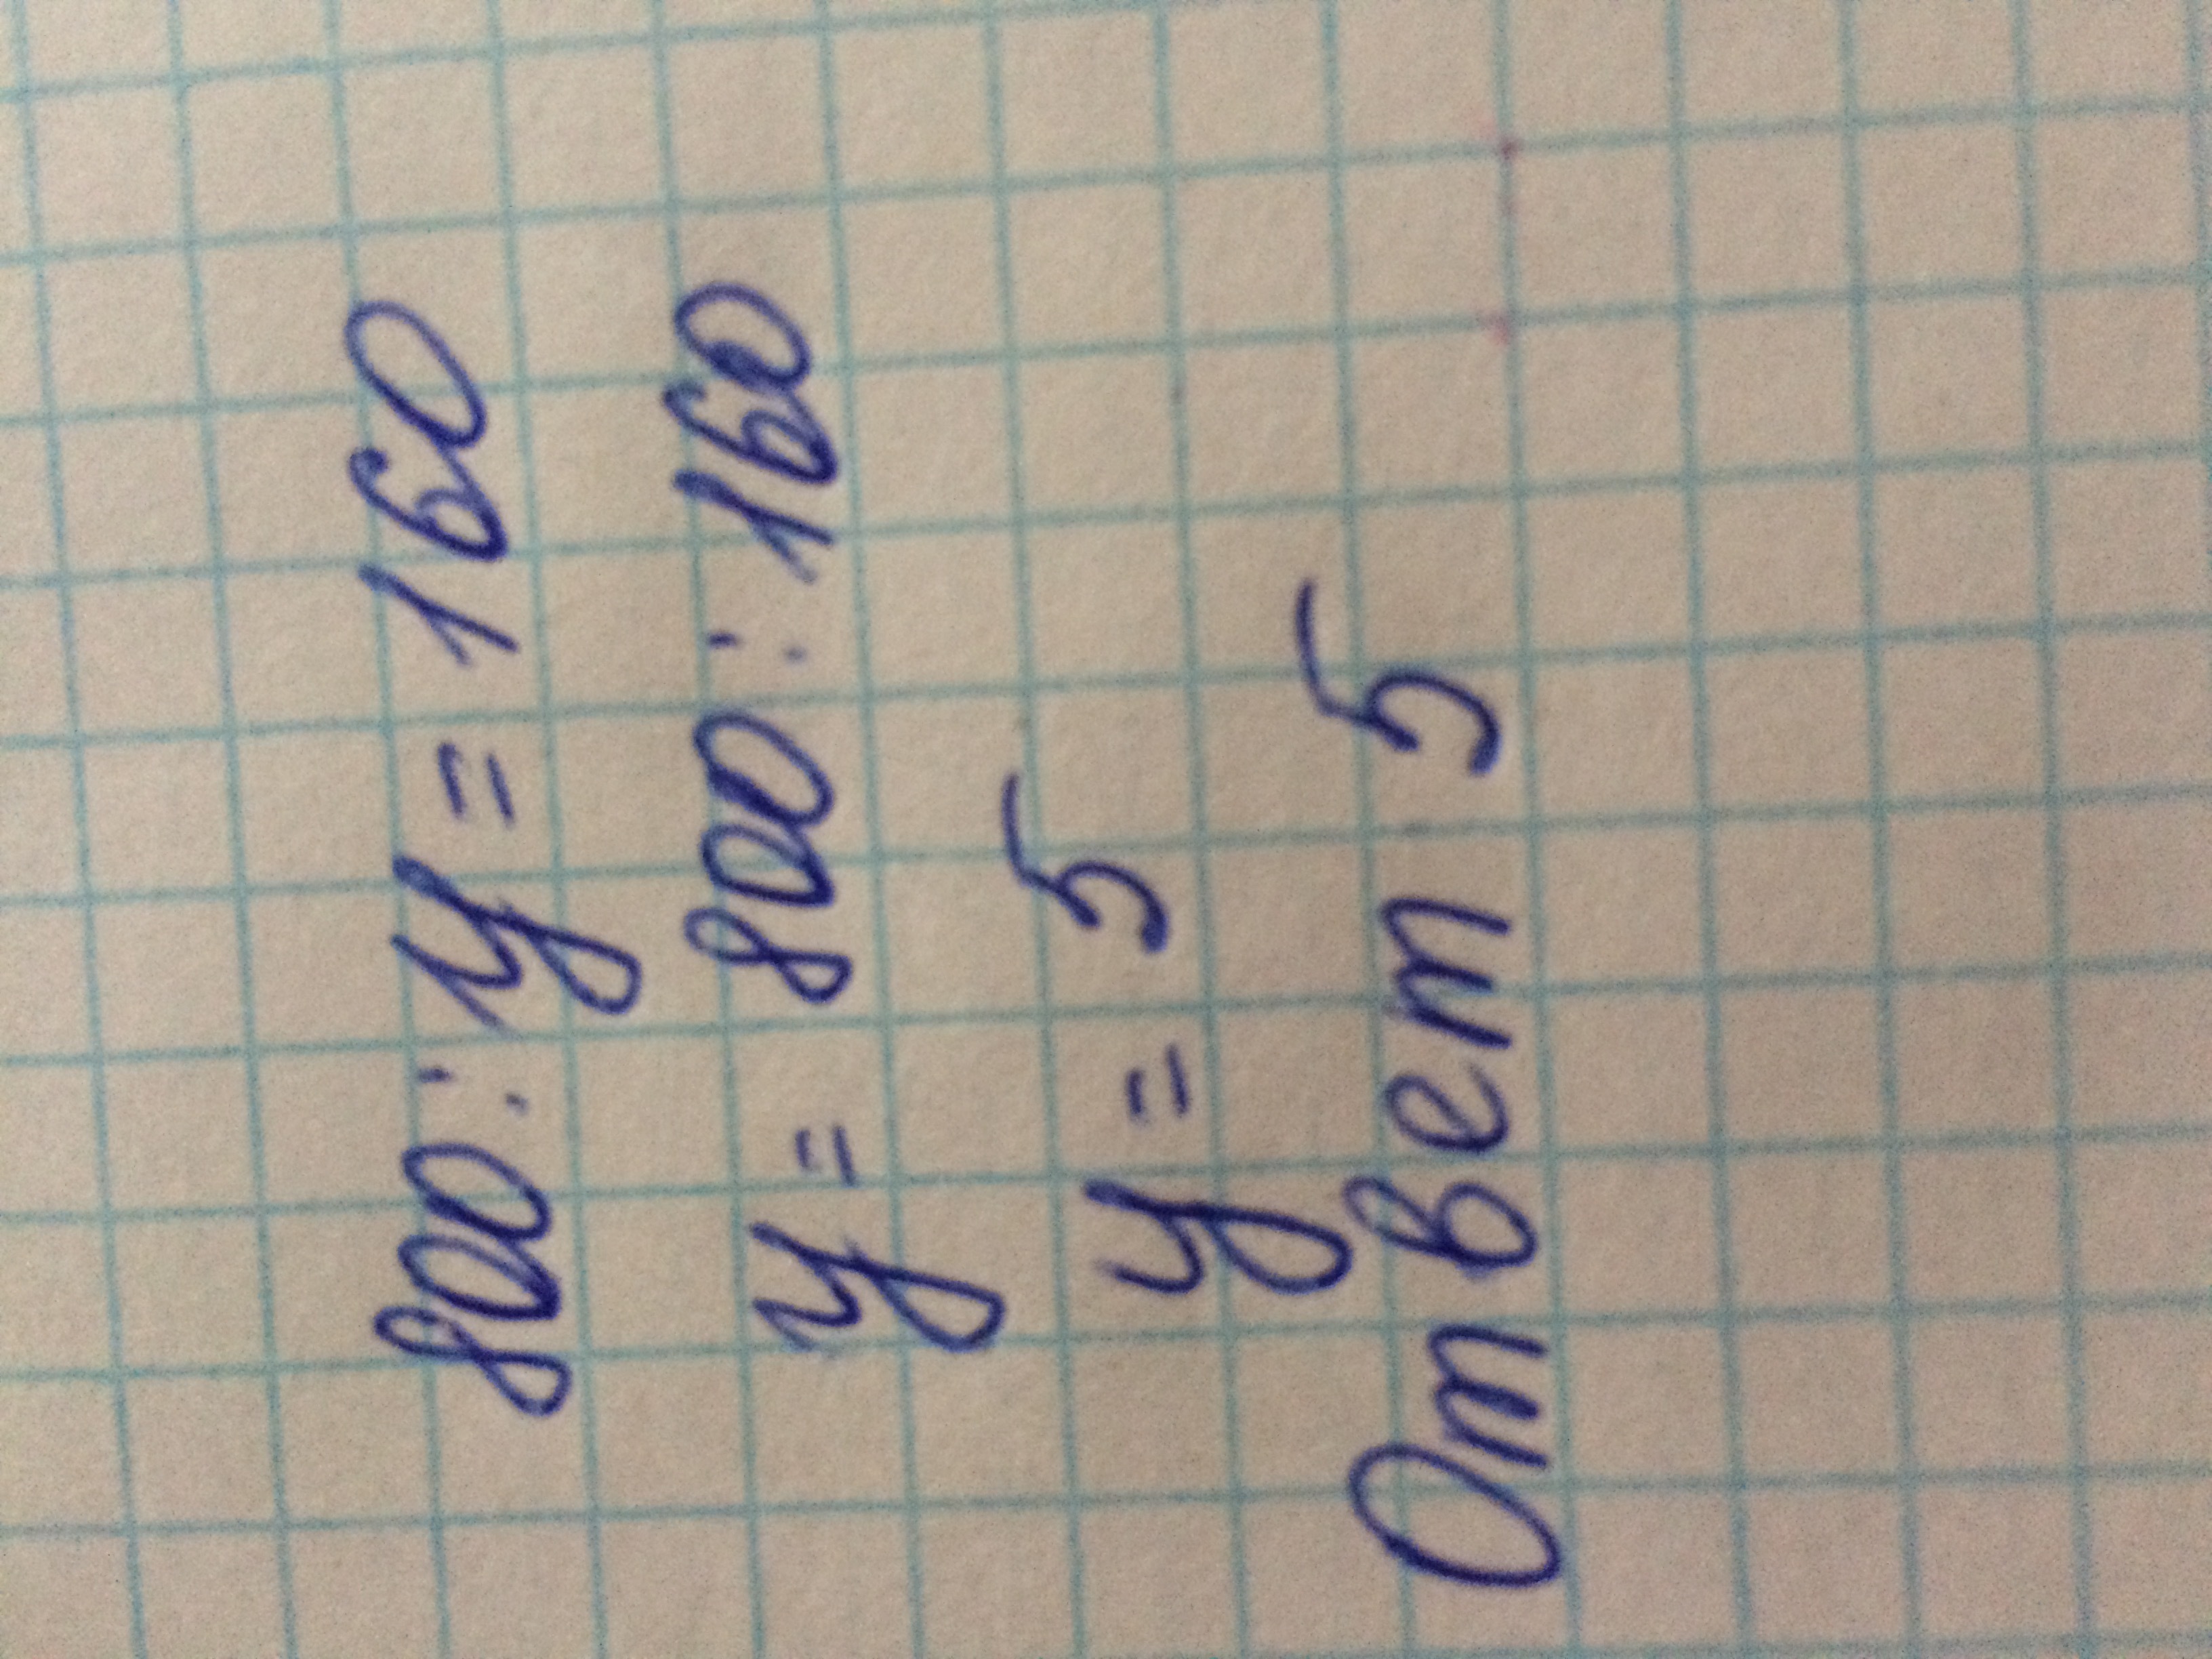 800 : у = 160
у = 800 : 160
у = 5
Ответ 5